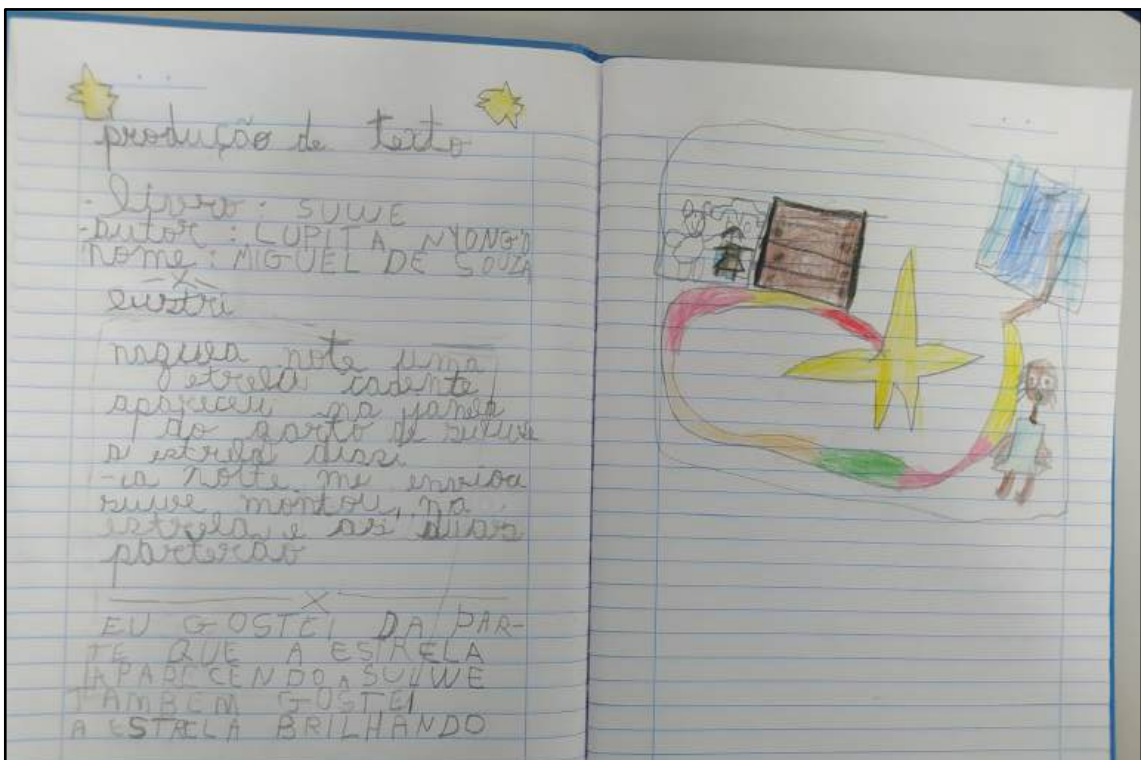 produção de texto
- livro : SUWE
- autor : LUPITA NYONG'O
nome : MIGUEL DE SOUZA
naquela note uma
etrela cadente
apareceu na janela
do qarto de suluwe
a estrela disi
- a noite me enviou
suluwe montou na
estrela e as duas
parterão
EU GOSTEI DA PAR-
TE QUE A ESTRELA
APARECENDO A SULWE
TAMBEM GOSTEI
A ESTRELA BRILHANDO